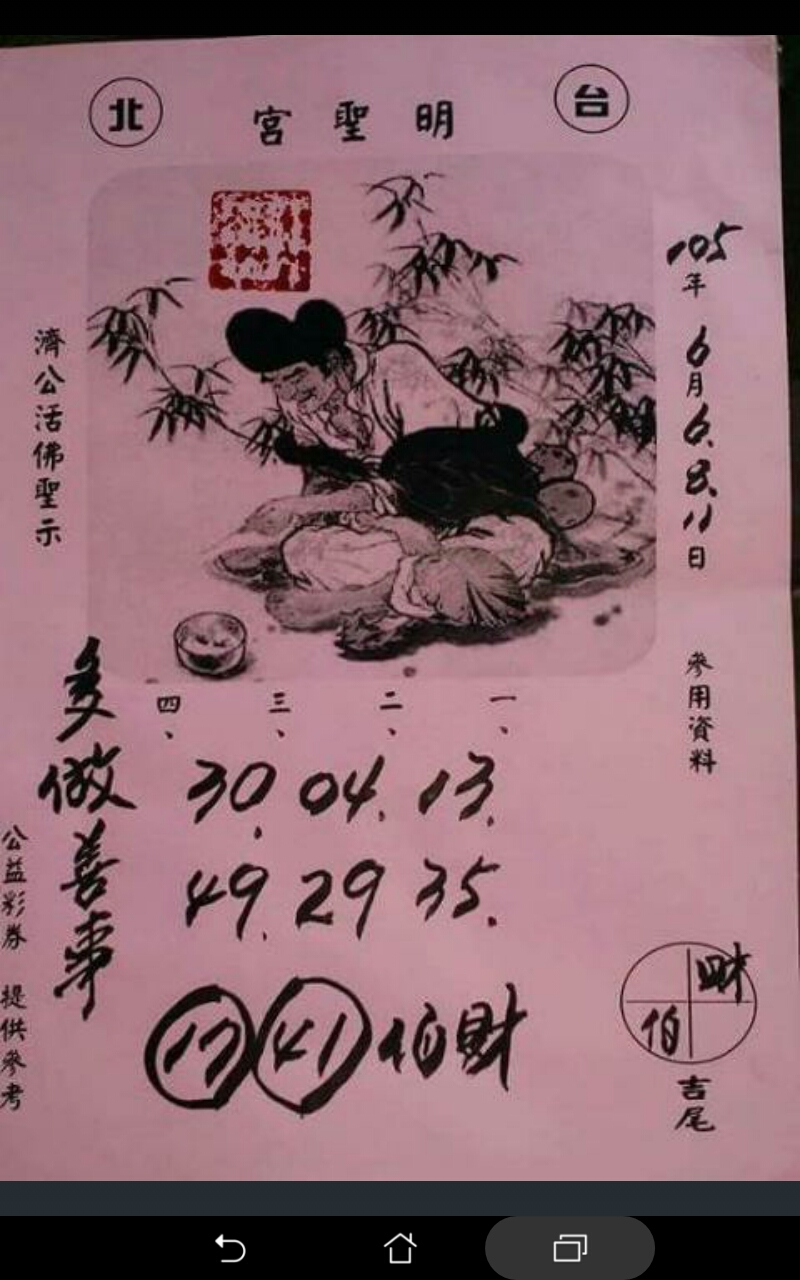 台北
明聖宮
105年6月6.8.11日
參用資料
濟公活佛聖示
一、二、三、四、
13. 04. 30.
35. 29 49.
多做善事
伯財
財
伯
吉尾
公益彩券 提供參考